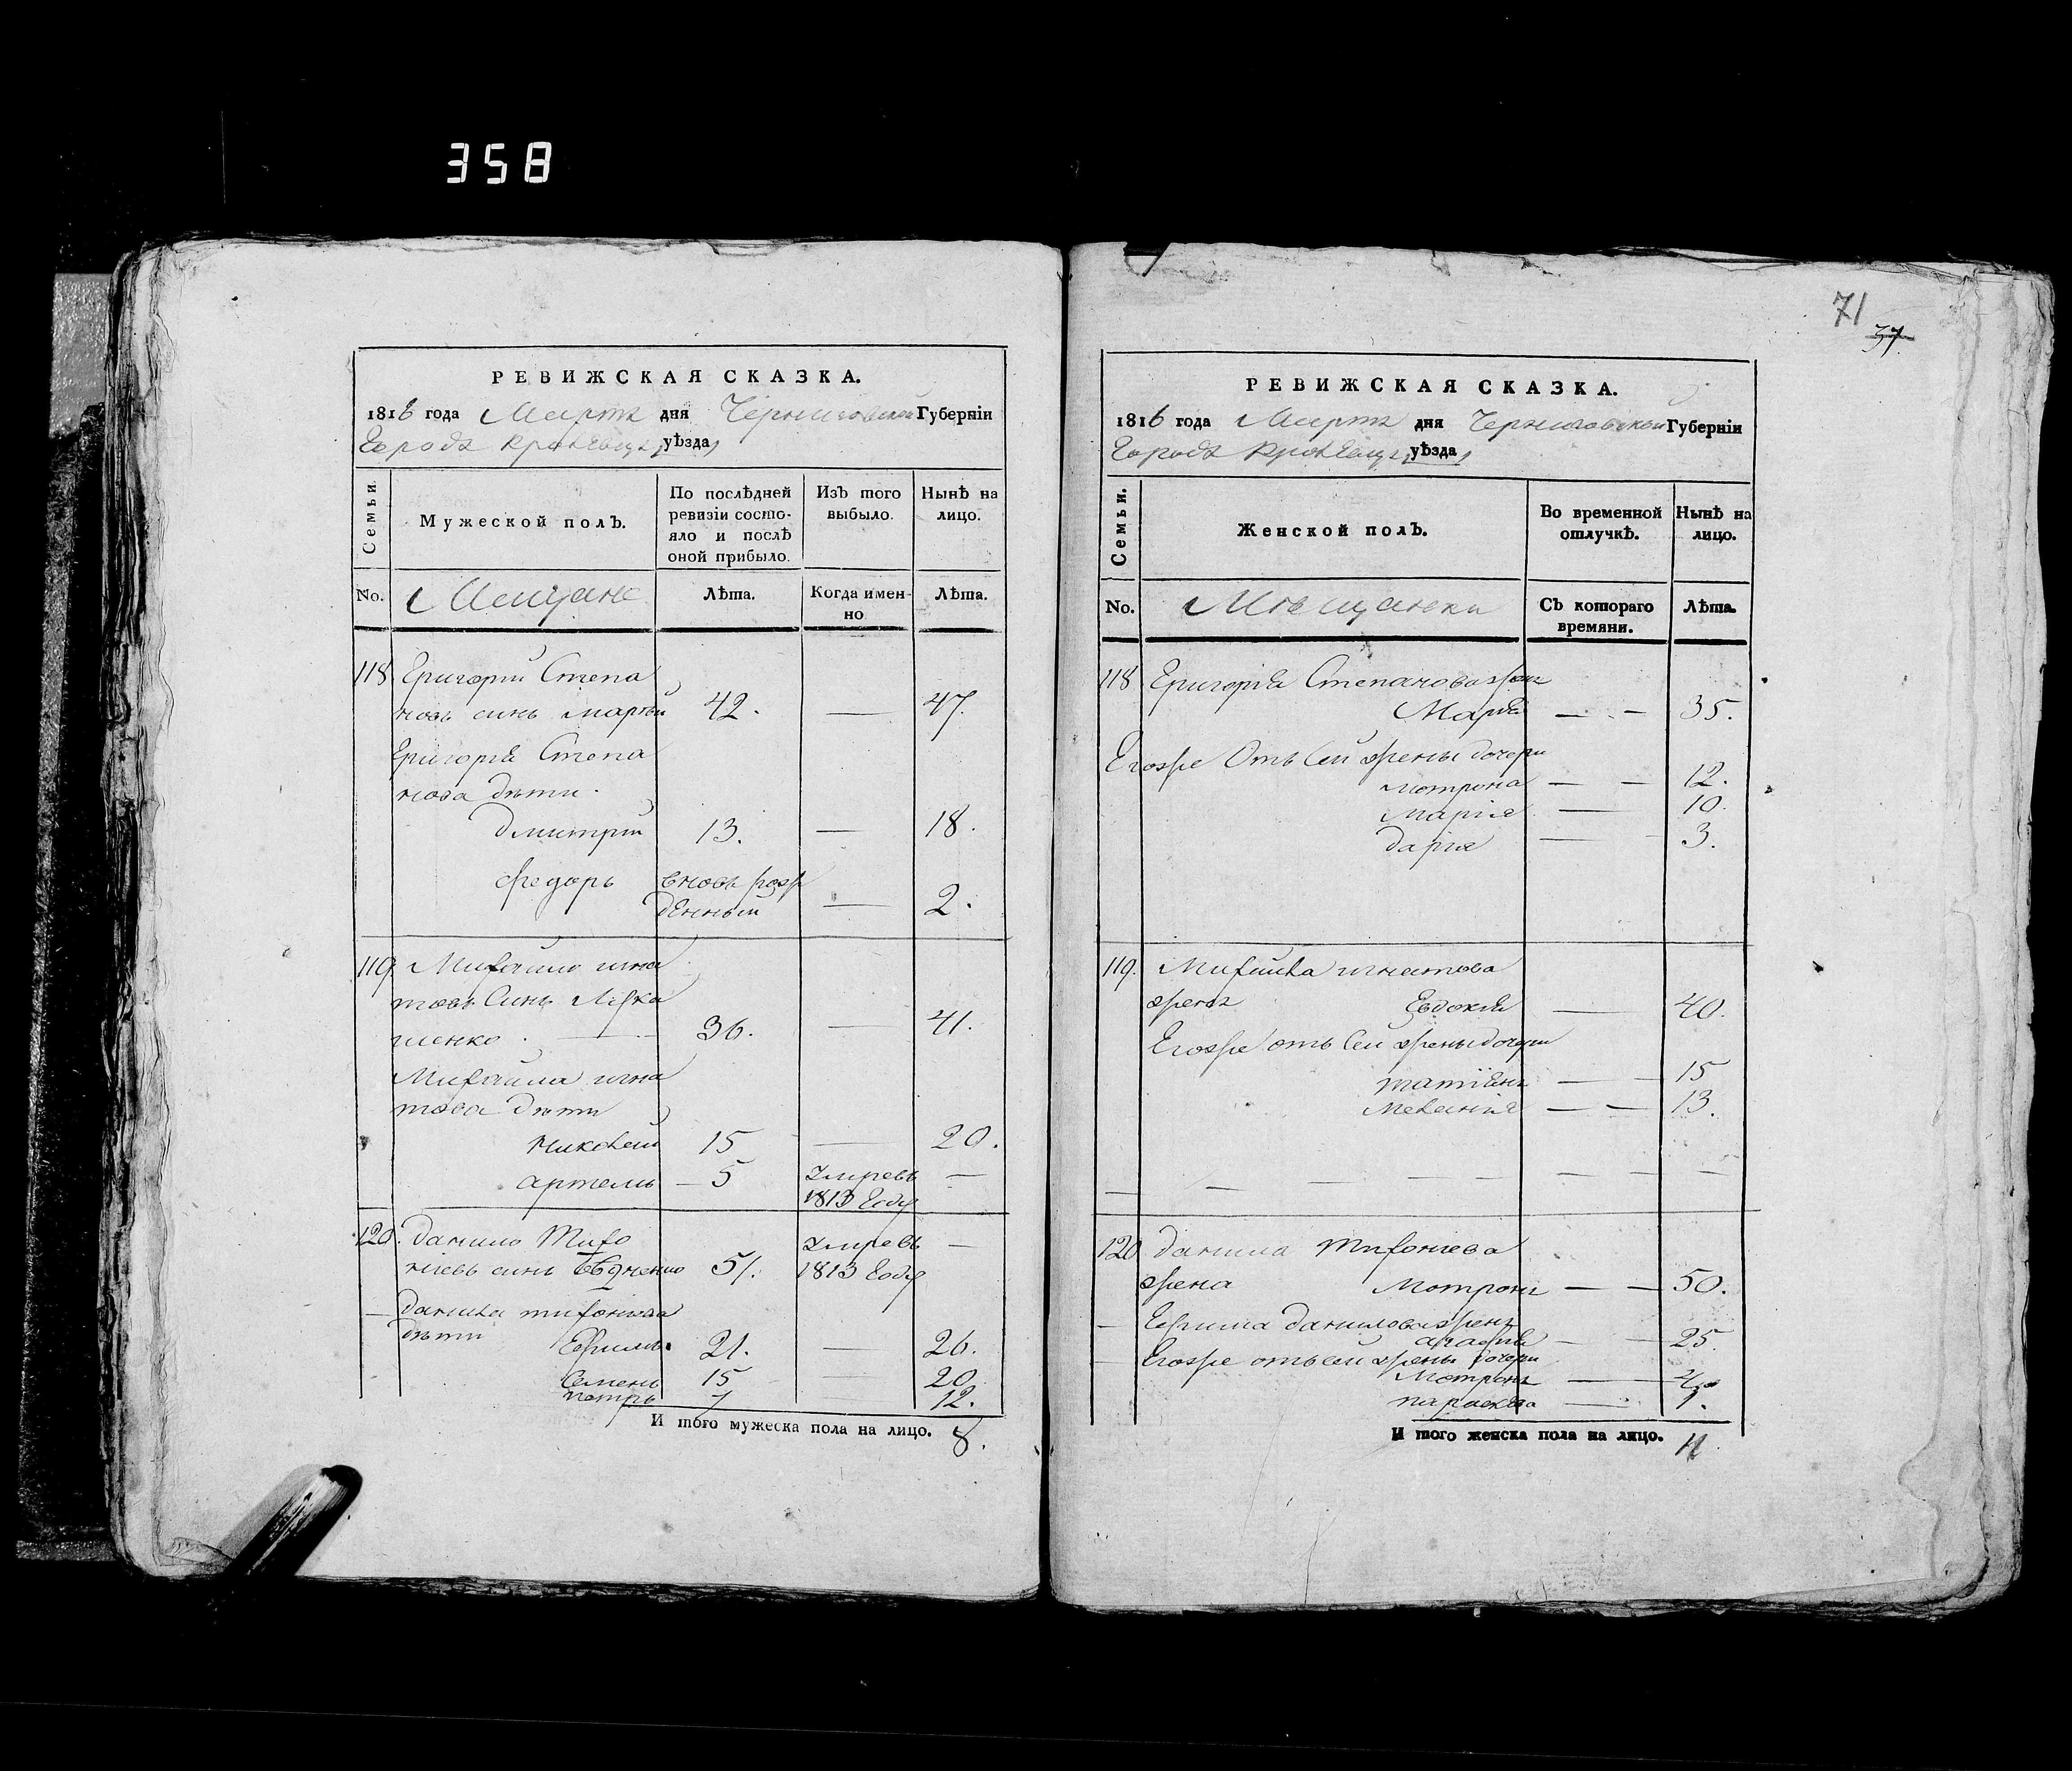 358
РЕВИЖСКАЯ СКАЗКА.
1816 года Марта дня Черниговской Губерніи
Города Кролевца уѣзда
Семьи.
Мужеской полъ.
По послѣдней ревизіи состояло и послѣ оной прибыло.
Изъ того выбыло.
Нынѣ на лицо.
No. Мещане Лѣта. Когда именно Лѣта.
118 Григорій Степа
новъ синъ 42. — 47.
Григорія Степа
нова дѣти.
Дмитрій 13. — 18.
Федоръ вновь рож
денный — 2.
119. Михайло игна
товъ Синъ
36. — 41.
Михайла игна
това дѣти
Николай 15 — 20.
артемъ — 5 Умревъ —
1813 Году
120. Данило Тихо
ніевъ синъ 51. Умревъ —
1813 Году
— Данила тихоніева
дѣти Ефимъ 21. — 26.
Семенъ 15 20
петръ 7 — 12.
И того мужеска пола на лицо. 8.
71
37.
РЕВИЖСКАЯ СКАЗКА.
1816 года Марта дня Черниговской Губерніи
Города Кролевца уѣзда
Семьи.
Женской полъ.
Во временной отлучкѣ.
Нынѣ на лицо.
No. Мѣщанки Съ котораго времяни. Лѣта.
118 Григорія Степанова жена
Марія — — 35.
Егожъ Отъ Сей жены дочери
мотрона — — 12.
марія — 10.
дарія — 3.
119. Михайла игнатова
жена Евдокія — 40.
Егожъ отъ Сей жены дочери
татіяна — — 15
меланія — — 13.
— — — — — — — —
120 Данила Тихоніева
жена Мотрона — — 50.
— Ефима Данилова жена
агафія — — 25.
— Егожъ отъ сей жены дочери
Мотрона — 4.
параскева — 1.
И того женска пола на лицо. 11.